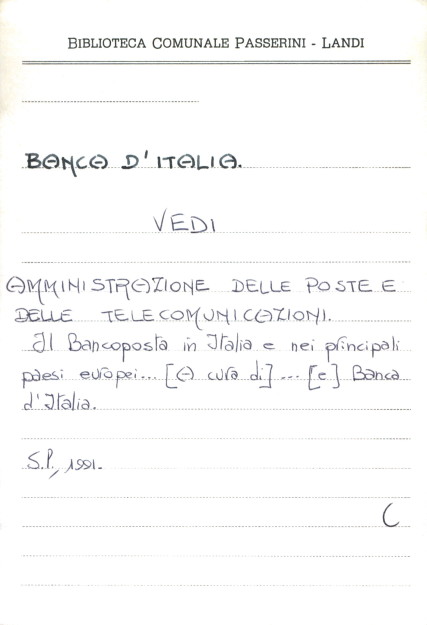 BIBLIOTECA COMUNALE PASSERINI - LANDI
BANCA D'ITALIA.
VEDI
AMMINISTRAZIONE DELLE POSTE E
DELLE TELECOMUNICAZIONI.
Il Bancoposta in Italia e nei principali
paesi europei... [A cura di] ... [e] Banca
d'Italia.
S.P., 1991.
C